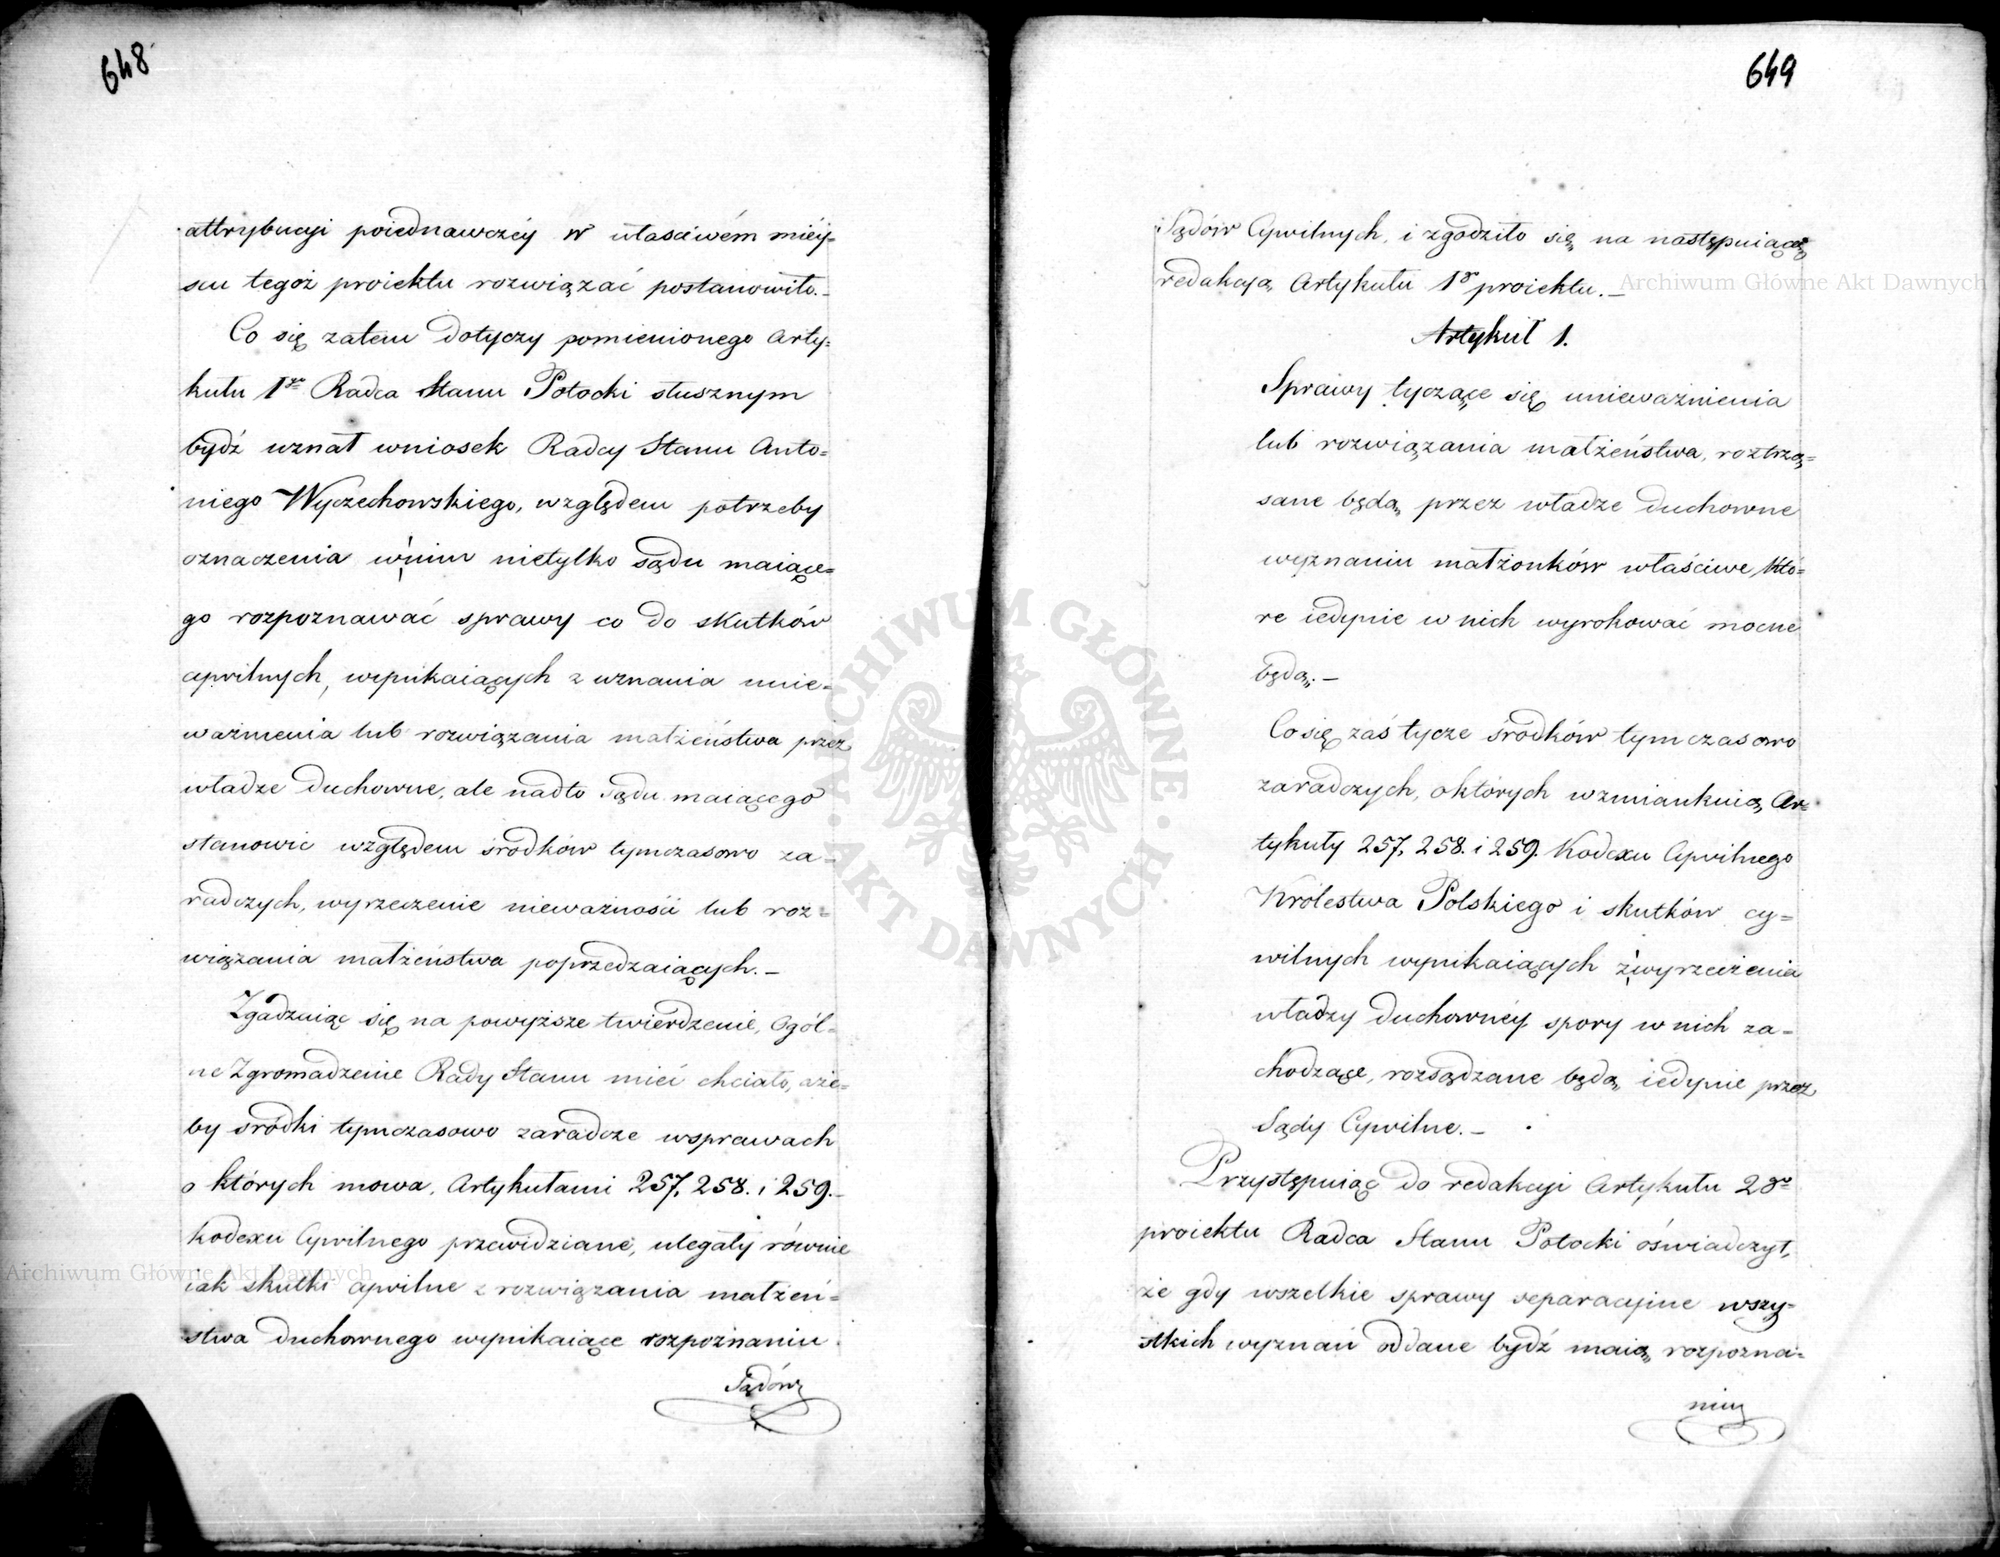 648
attrybucyi poiednawczéy w właściwém miéy=
scu tegoż proiektu rozwiązać postanowiło.—
Co się zatem dotyczy pomienionego Arty=
kułu 1go Radca Stanu Potocki słusznym
bydź uznał wniosek Radcy Stanu Anto=
niego Wyczechowskiego, względem potrzeby
oznaczenia w nim nietylko sądu maiące=
go rozpoznawać sprawy co do skutków
cywilnych, wynikaiących z uznania unie=
ważnienia lub rozwiązania małżeństwa przez
władze duchowne, ale nadto Sądu maiącego
stanowić względem środków tymczasowo za=
radczych, wyrzeczenie nieważności lub roz=
wiązania małżeństwa poprzedzaiących.—
Zgadzaiąc się na powyższe twierdzenie, Ogól=
ne Zgromadzenie Rady Stanu mieć chciało, aże=
by środki tymczasowo zaradcze w sprawach
o których mowa, Artykułami 257, 258. i 259.
Kodexu Cywilnego przewidziane, ulegały równie
iak skutki cywilne z rozwiązania małżeń=
stwa duchownego wynikaiące rozpoznaniu
Sądów
649
Sądów Cywilnych, i zgodziło się na następuiącą
redakcją Artykułu 1go proiektu.—
Artykuł 1.
Sprawy tyczące się unieważnienia
lub rozwiązania małżeństwa, roztrzą=
sane będą przez władze duchowne
wyznaniu małżonków właściwe, któ=
re iedynie w nich wyrokować mocne
będą.—
Co się zaś tycze środków tymczasowo
zaradczych, o których wzmiankuią Ar=
tykuły 257, 258. i 259. Kodexu Cywilnego
Królestwa Polskiego i skutków cy=
wilnych wynikaiących z wyrzeczenia
władzy duchownéy spory w nich za=
chodzące, rozsądzane będą iedynie przez
Sądy Cywilne.—
Przystępuiąc do redakcyi Artykułu 2go
proiektu Radca Stanu Potocki oświadczył,
że gdy wszelkie sprawy separacyine wszy=
stkich wyznań oddane bydź maią rozpozna=
niu
Archiwum Główne Akt Dawnych
Archiwum Główne Akt Dawnych
ARCHIWUM GŁÓWNE · AKT DAWNYCH ·